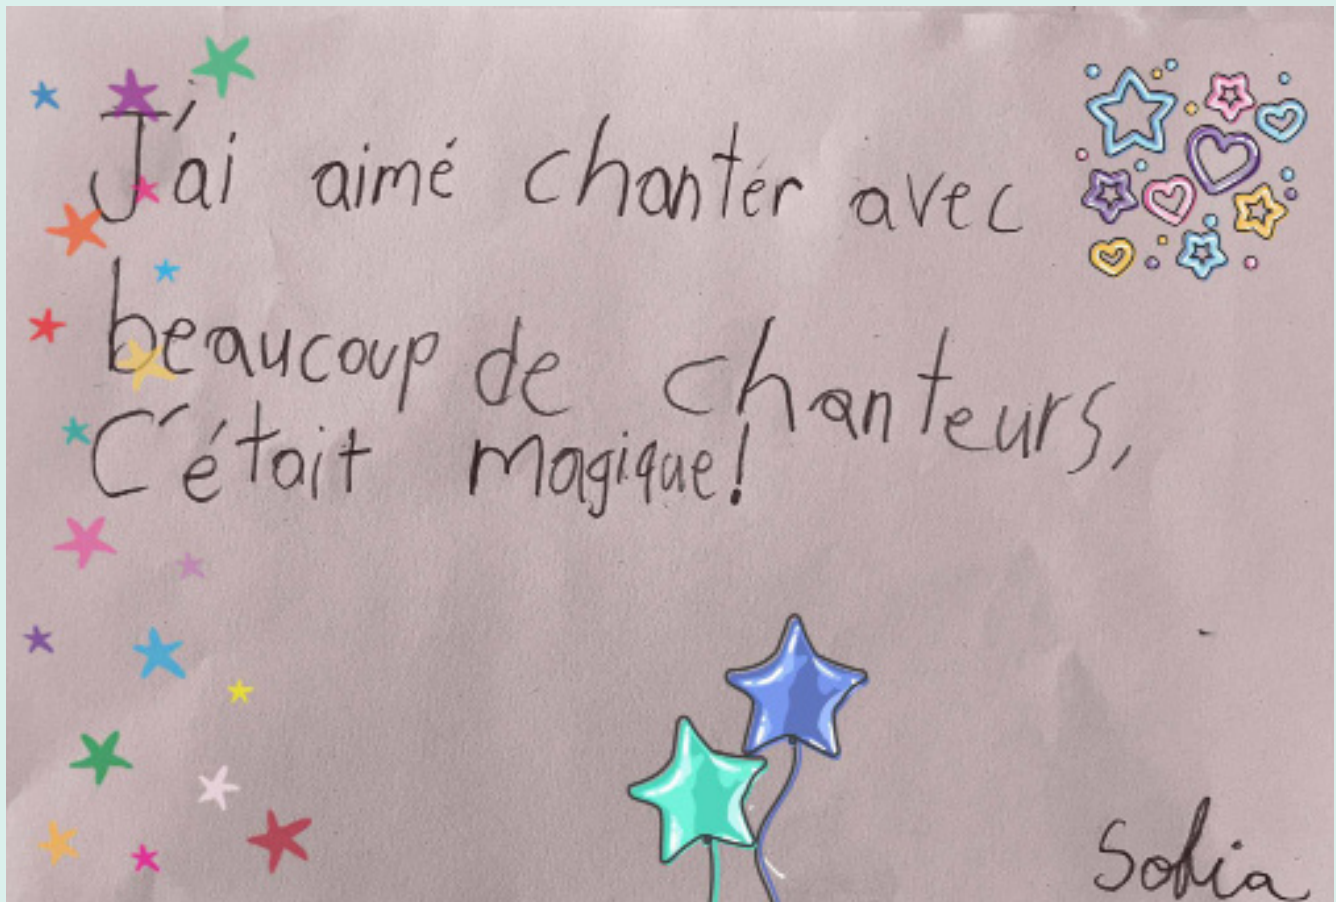 J'ai aimé chanter avec
beaucoup de chanteurs,
C'était magique!
Sofia